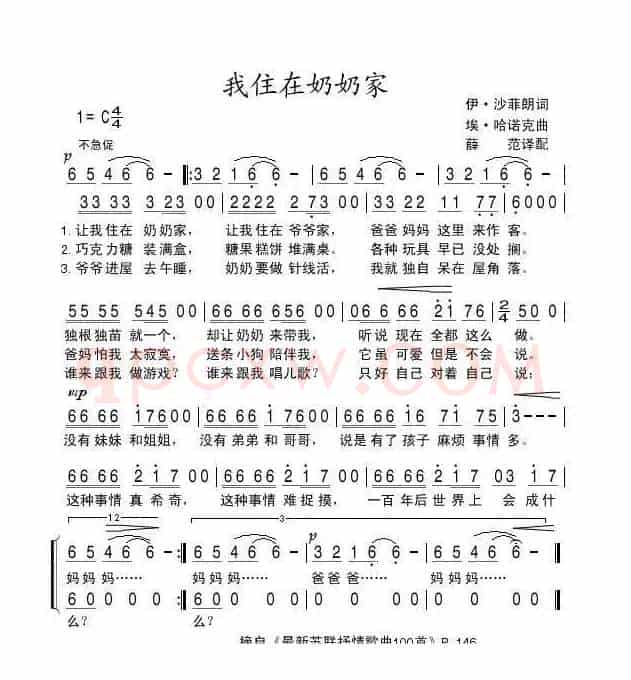 我住在奶奶家
1= C 4/4
伊·沙菲朗词
埃·哈诺克曲
薛 范译配
不急促
p
6 5 4 6 6 - 𝄆 3 2 1 6 6 - | 6 5 4 6 6 - | 3 2 1 6 6 - |
33 33 3 23 00 | 2222 2 73 00 | 33 33 33 22 | 6000 |
1. 让我住在 奶奶家, 让我住在 爷爷家, 爸爸妈妈 这里 来作 客。
2. 巧克力糖 装满盒, 糖果糕饼 堆满桌。 各种玩具 早已 没处 搁。
3. 爷爷进屋 去午睡, 奶奶要做 针线活, 我就独自 呆在 屋角 落。
55 55 545 00 | 66 66 656 00 | 06 6 66 21 76 | 2/4 50 0 |
独根独苗 就一个, 却让奶奶 来带我, 听说 现在 全都 这么 做。
爸妈怕我 太寂寞, 送条小狗 陪伴我, 它虽 可爱 但是 不会 说。
谁来跟我 做游戏? 谁来跟我 唱儿歌? 只好 自己 对着 自己 说:
mp
66 66 17600 | 66 66 17600 | 66 66 16 71 75 | 3 - - - |
没有妹妹 和姐姐, 没有弟弟 和哥哥, 说是有了 孩子 麻烦 事情 多。
66 66 2 17 00 | 66 66 2 17 00 | 66 66 2 17 03 17 |
这种事情 真 希奇, 这种事情 难捉摸, 一百年后 世界上 会 成什
12
3
p
6 5 4 6 6 - 𝄇 6 5 4 6 6 - | 3 2 1 6 6 - | 6 5 4 6 6 - |
妈妈妈…… 妈妈妈…… 爸爸爸…… 妈妈妈……
6 0 0 0 𝄇 6 0 0 0 | 6 0 0 0 | 6 0 0 0 |
么? 么?
摘自《最新苏联抒情歌曲100首》P. 146